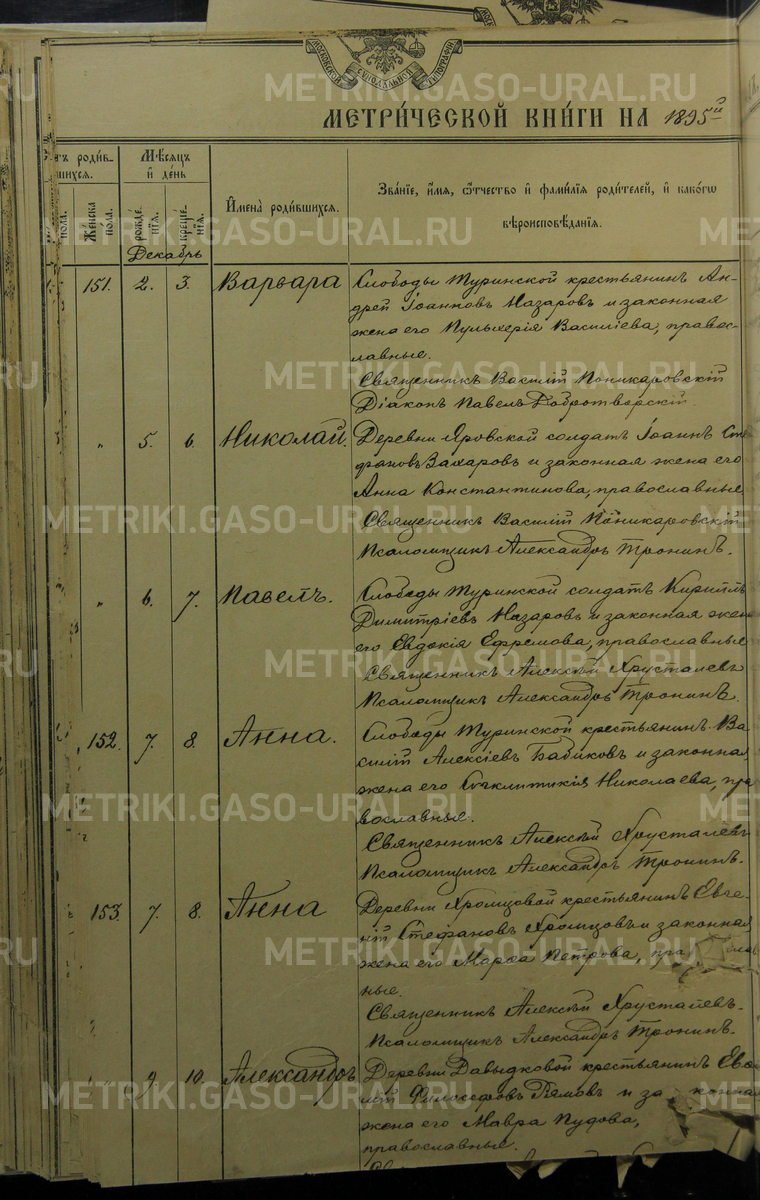 МОСКОВСКОЙ СѴНОДАЛЬНОЙ ТИПОГРАФІИ
METRIKI.GASO-URAL.RU
МЕТРИ́ЧЕСКОЙ КНИ́ГИ НА 1895й
Мѣсяцъ и день
Женска пола.
рожде́нїѧ.
креще́нїѧ.
Имена̀ роди́вшихсѧ.
Зва́нїе, и́мѧ, ѻ́тчество и фами́лїѧ роди́телей, и како́гѡ
вѣроисповѣ́данїѧ.
Декабрь
151. 2. 3. Варвара Слободы Туринской крестьянинъ Ан-
дрей Іоанновъ Назаровъ и законная
жена его Пульхерія Василіева, правос-
лавные.
Священникъ Василій Поникаровскій
Діаконъ Павелъ Добротворскій.
" 5. 6. Николай. Деревни Яровской солдатъ Іоаннъ Сте-
фановъ Захаровъ и законная жена его
Анна Константинова, православные
Священникъ Василій Поникаровскій
Псаломщикъ Александръ Тронинъ.
" 6. 7. Павелъ. Слободы Туринской солдатъ Кириллъ
Димитріевъ Назаровъ и законная жен
его Евдокія Ефремова, православные
Священникъ Алексѣй Хрусталевъ
Псаломщикъ Александръ Тронинъ.
152. 7. 8. Анна. Слободы Туринской крестьянинъ Ва-
силій Алексіевъ Бабиковъ и законная
жена его Сигклитикія Николаева, пра
вославные.
Священникъ Алексѣй Хрусталевъ
Псаломщикъ Александръ Тронинъ.
153 7. 8. Анна Деревни Хромцовой крестьянинъ Евге-
ній Стефановъ Хромцовъ и законная
жена его Марѳа Петрова, пра
ные.
Священникъ Алексѣй Хрусталевъ.
Псаломщикъ Александръ Тронинъ.
" 9. 10. Александръ Деревни Давыдковой крестьянинъ
и за конная
жена его Мавра Пудова,
православные.